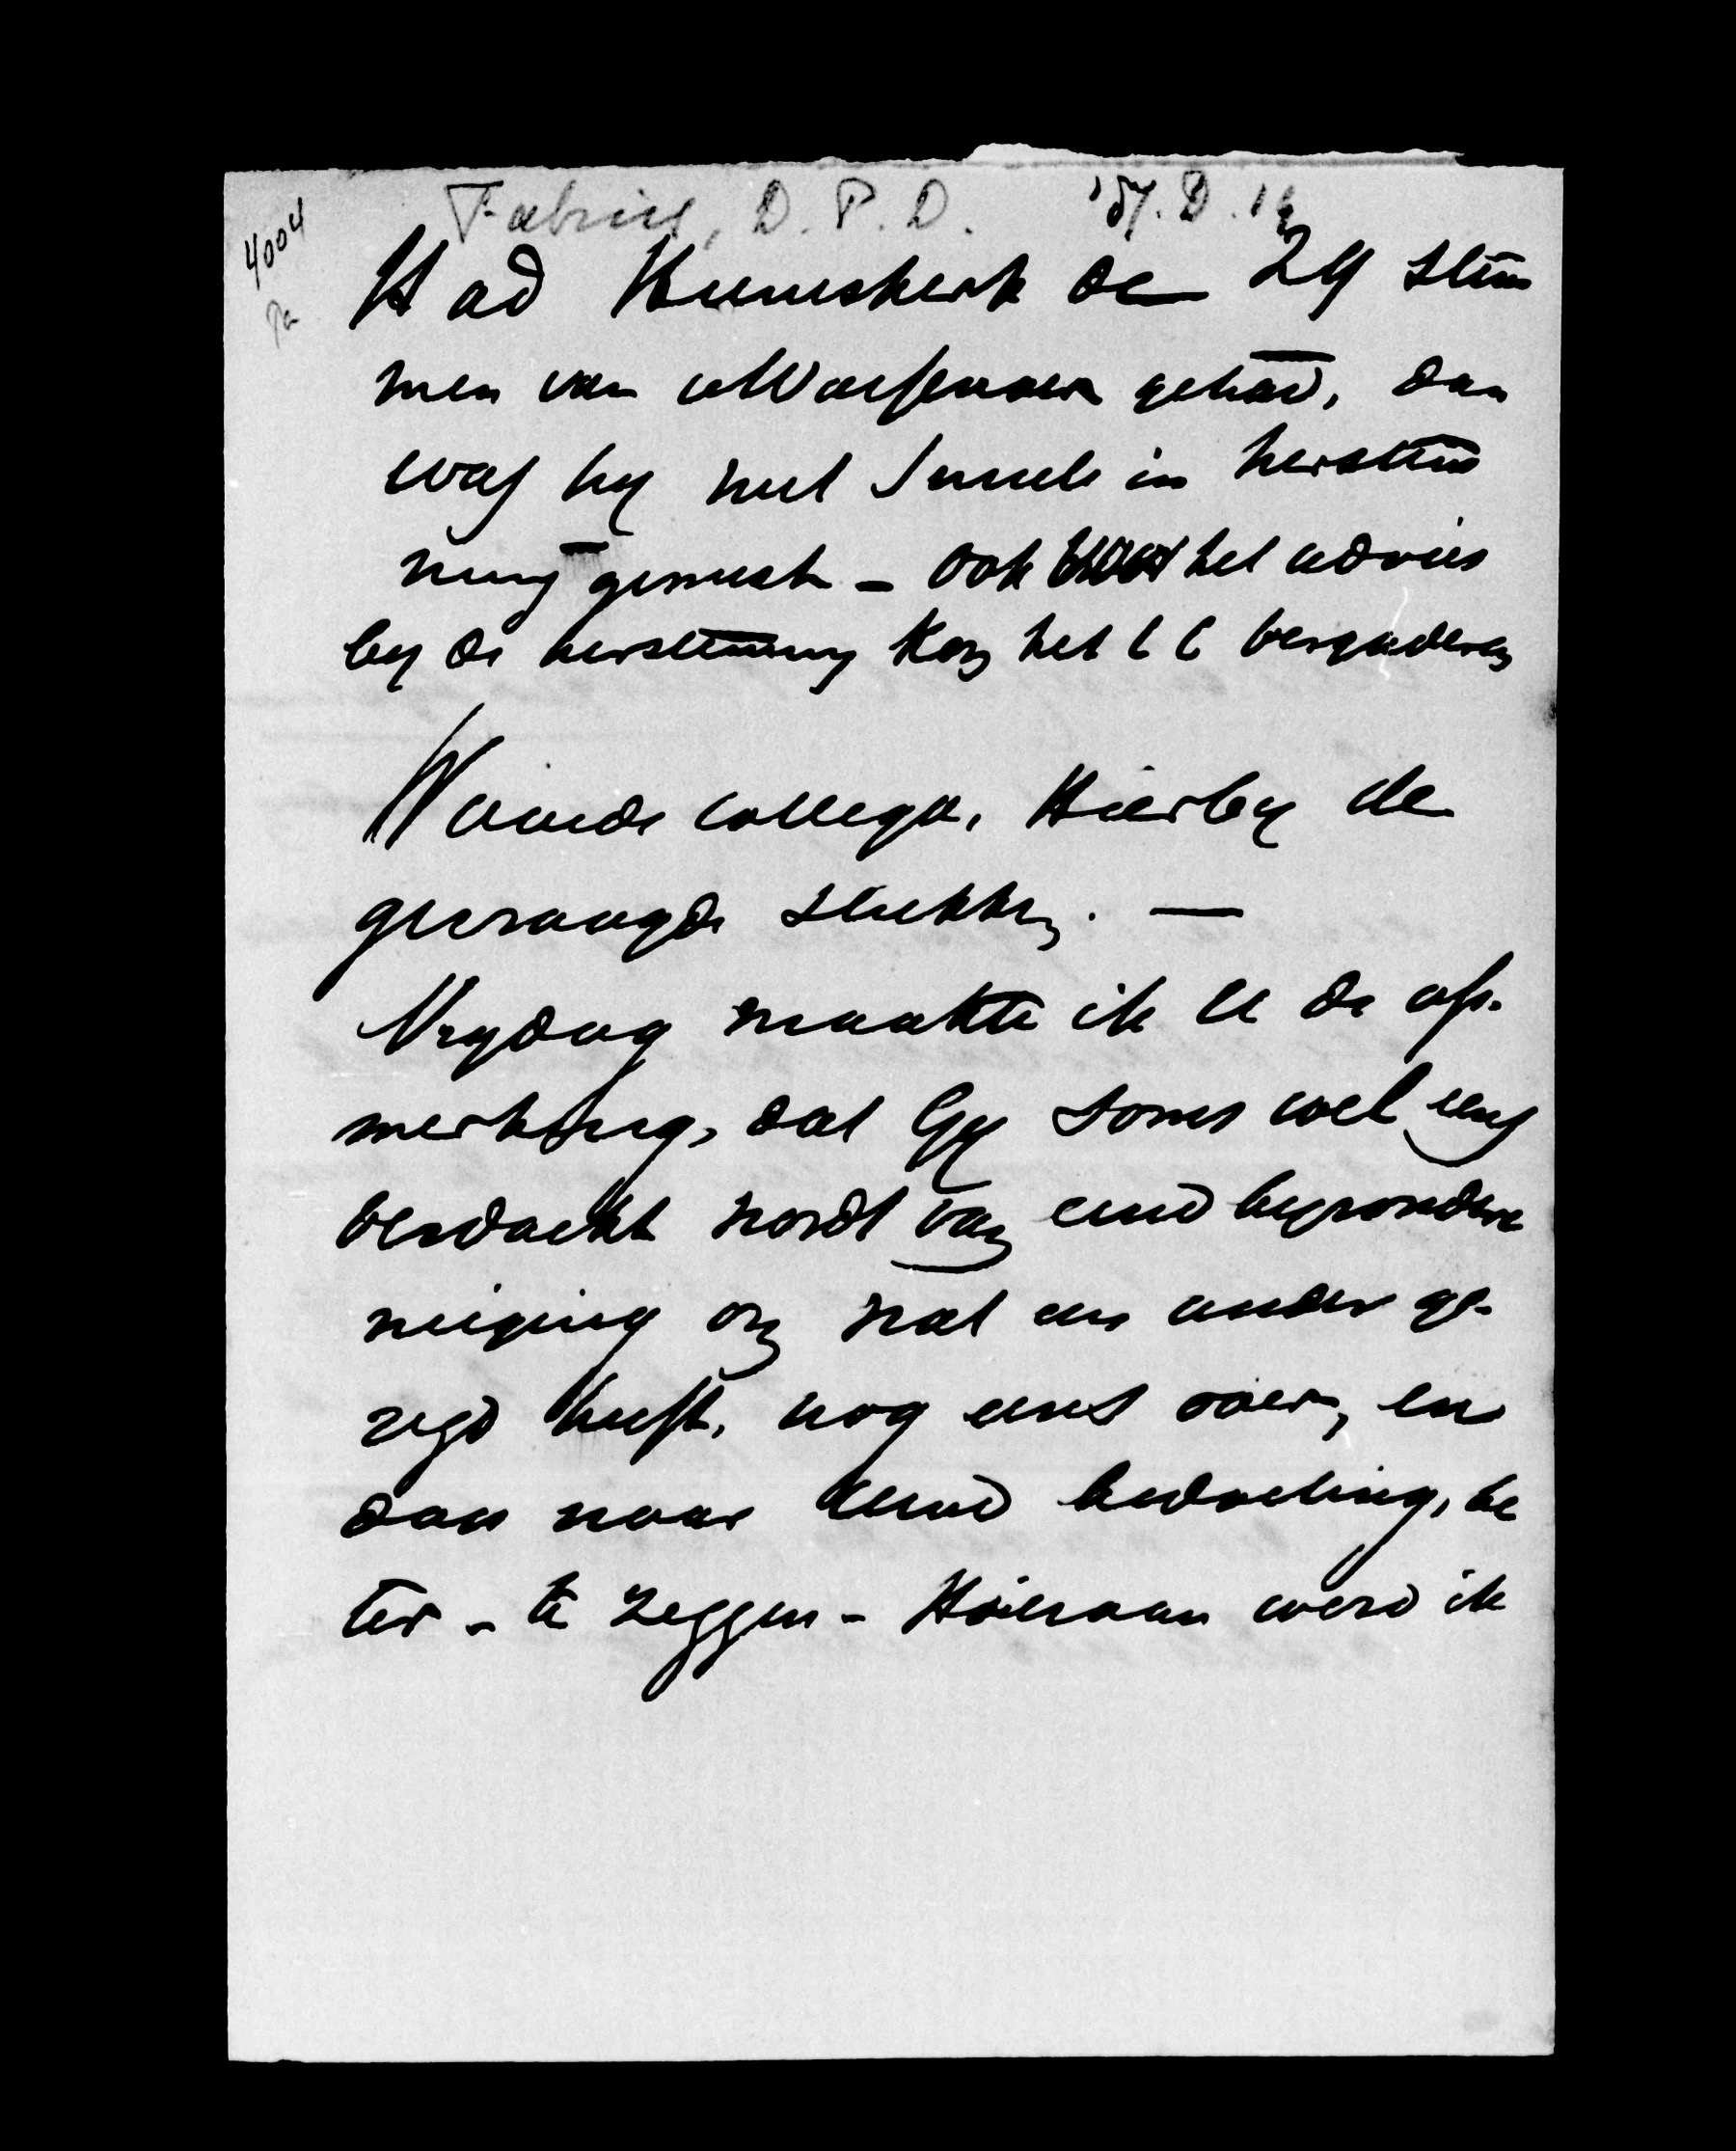 4004
Fabius, D. P. D.
Had Heemskerk de 24 stem
men van Wassenaer gehad, dan
was hy met Smeele in herstem
ming geweest - Ook het advies
by de herstemming kon het C C vergaderen
Waarde collega, Hierby de
gevraagde stukken. —
Vrydag maakte ik U de op-
merking, dat Gy soms wel eens
verdacht wordt van eene byzondere
neiging om wat een ander ge-
zegd heeft, nog eens over, en
dan naar Uwe bedoeling, be
ter - te zeggen - Hieraan werd ik